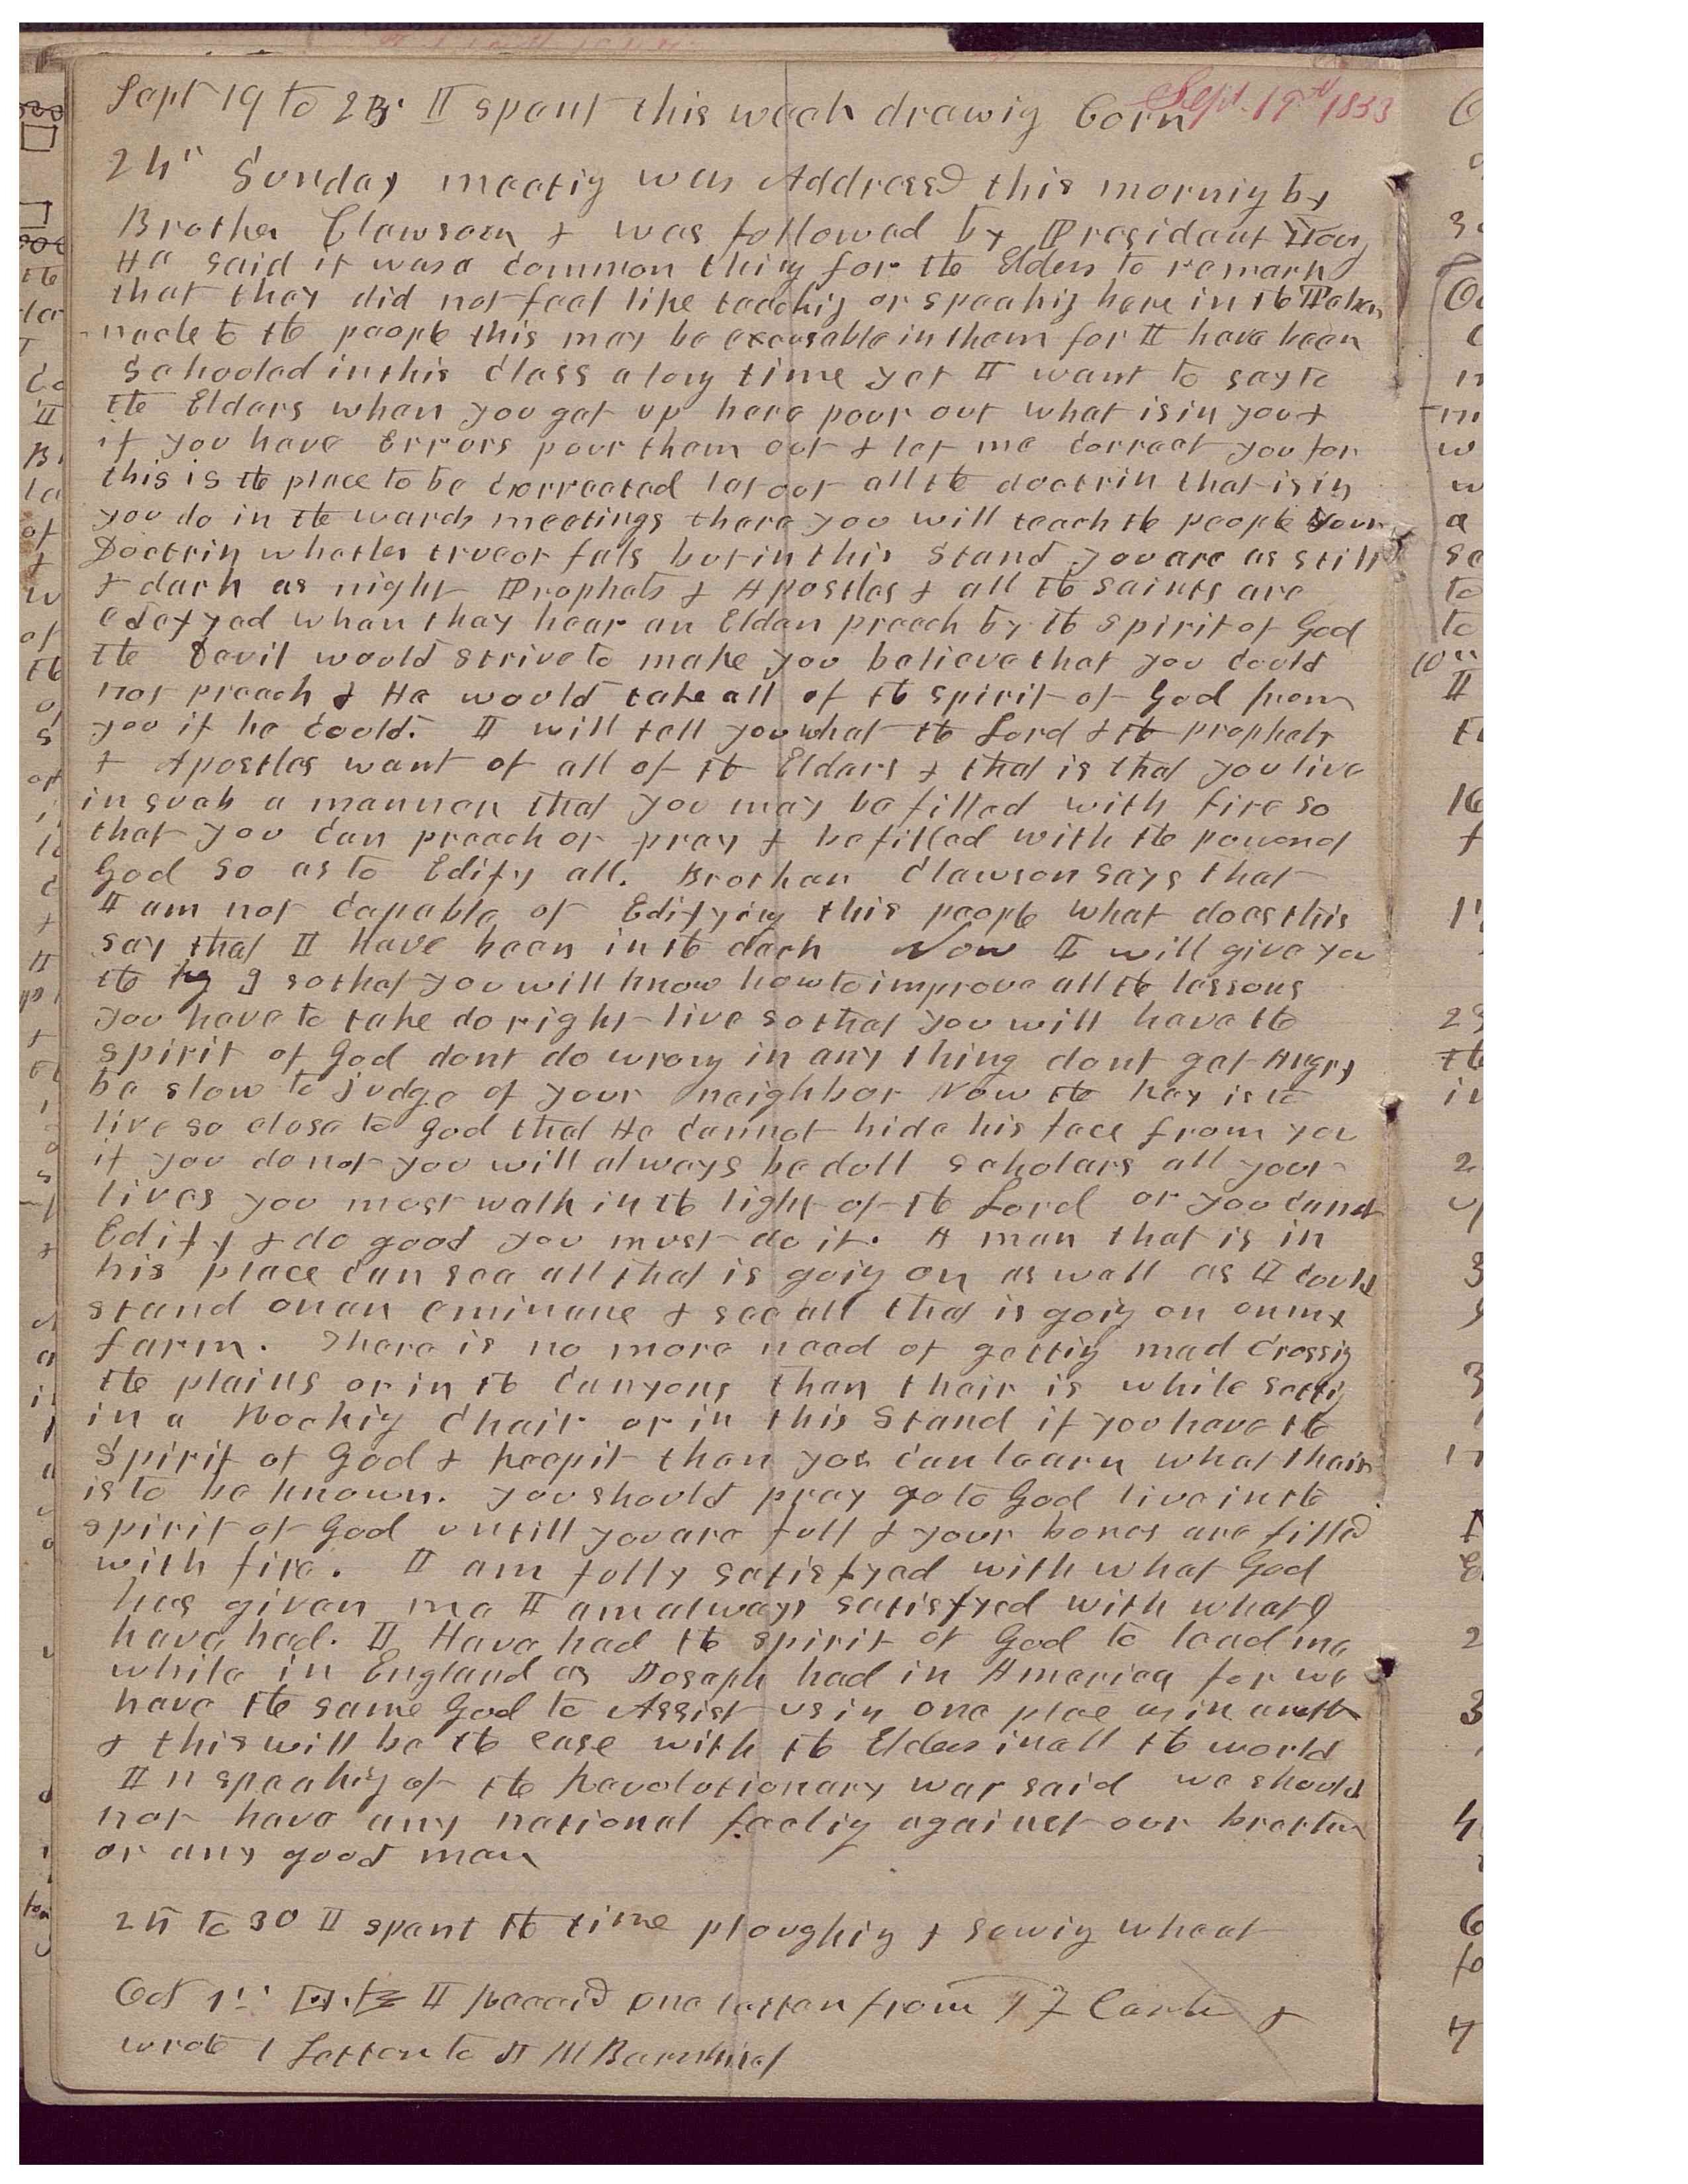 Sept 19 to 23. I spent this week drawing Corn
Sept. 19th 1853
24" Sunday meeting was Addressd this morning by
Brother Clawson & was followed by President Young
He said it was a common thing for the Elders to remark
that they did not feel like teaching or speaking here in the Taber
-nacle to the people this may be excusable in them for I have been
Schooled in this class a long time yet I want to say to
the Elders when you get up here pour out what is in you &
if you have Errors pour them out & let me correct you for
this is the place to be corrected let out all the doctrin that is in
you do in the wards meetings there you will teach the people your
Doctrin whether true or fals but in this Stand you are as still
& dark as night Prophets & Apostles & all the saints are
edefyed when they hear an Elder preach by the spirit of God
the Devil would strive to make you believe that you could
not preach & He would take all of the spirit of God from
you if he could. I will tell you what the Lord & the prophets
& Apostles want of all of the Elders & that is that you live
in such a manner that you may be filled with fire so
that you can preach or pray & be filled with the power of
God so as to Edify all. Brother Clawson says that
I am not capable of Edifying this people what does this
say that I have been in the dark Now I will give you
the so that you will know how to improve all the lessons
you have to take do right live so that you will have the
spirit of God dont do wrong in any thing dont get Angry
be slow to judge of your neighbor Now the key is to
live so close to God that He cannot hide his face from you
if you do not you will always be dull scholars all your
lives you must walk in the light of the Lord or you cannot
Edify & do good you must do it. A man that is in
his place can see all that is going on as well as I could
stand on an eminane & see all that is going on on my
farm. There is no more need of getting mad crossing
the plains or in the Canyons than thair is while setting
in a Rocking Chair or in this Stand if you have the
Spirit of God & keep it then you can learn what thair
is to be known. you should pray go to God live in the
spirit of God untill you are full & your bones are filled
with fire. I am fully satisfyed with what God
has given me I am always satisfyed with what I
have had. I Have had the spirit of God to lead me
while in England as Joseph had in America for we
have the same God to Assist us in one place as in another
& this will be the case with the Elders in all the world
In speaking of the Revolutionary war said we should
not have any national feeling against our brethren
or any good man
25 to 30 I spent the time ploughing & sowing wheat
Oct 1st I Receid one letter from Carter &
wrote 1 Letter to